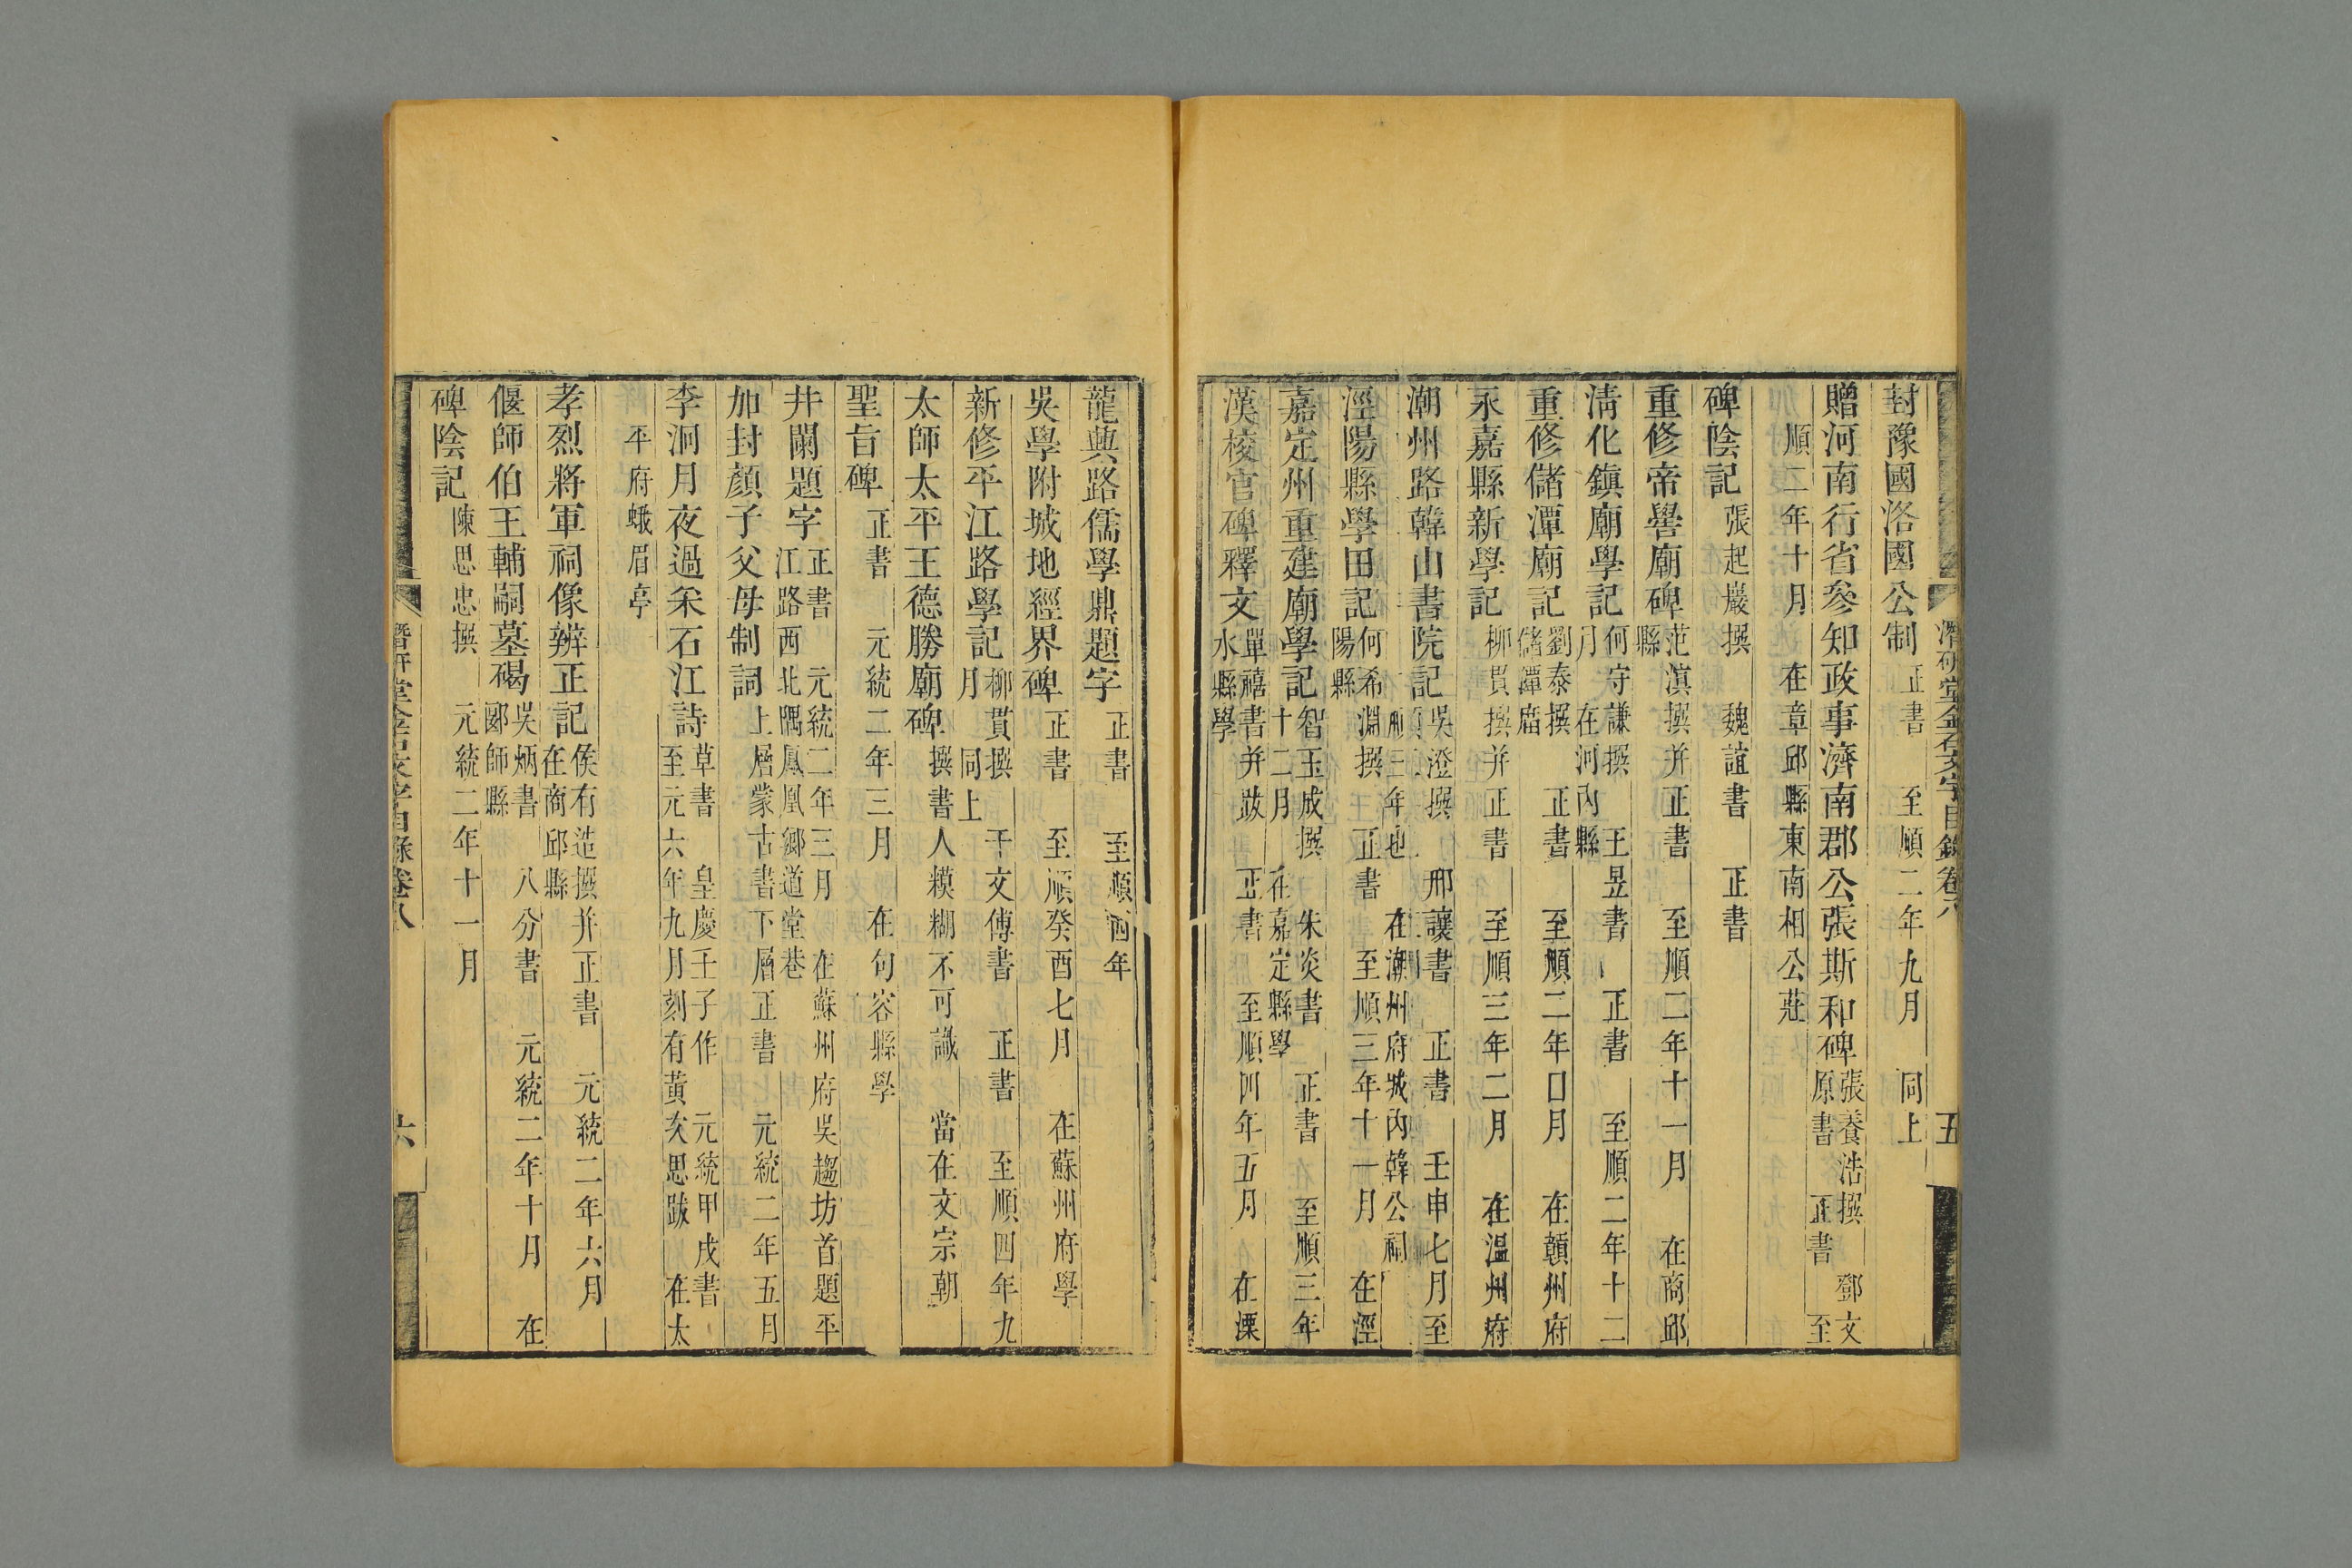 封豫國洛國公制 正書 至順二年九月 同上
贈河南行省參知政事濟南郡公張斯和碑 張養浩撰 鄧文原書 正書 至
順二年十月 在章邱縣東南相公莊
碑陰記 張起巖撰 魏誼書 正書
重修帝嚳廟碑 范滇撰并正書 至順二年十一月 在商邱縣
清化鎮廟學記 何守謙撰 王昱書 正書 至順二年十二月 在河內縣
重修儲潭廟記 劉泰撰 正書 至順二年口月 在贛州府儲潭廟
永嘉縣新學記 柳貫撰并正書 至順三年二月 在溫州府
潮州路韓山書院記 吳澄撰 邢讓書 正書 壬申七月至順三年也 在潮州府城內韓公祠
涇陽縣學田記 何希淵撰 正書 至順三年十一月 在涇陽縣
嘉定州重建廟學記 智玉成撰 朱炎書 正書 至順三年十二月 在嘉定縣學
漢校官碑釋文 單禧書并跋 正書 至順四年五月 在溧水縣學
潛研堂金石文字目錄卷八 五
龍興路儒學鼎題字 正書 至順四年
吳學附城地經界碑 正書 至順癸酉七月 在蘇州府學
新修平江路學記 柳貫撰 干文傳書 正書 至順四年九月 同上
太師太平王德勝廟碑 撰書人模糊不可識 當在文宗朝
聖旨碑 正書 元統二年三月 在句容縣學
井闌題字 正書 元統二年三月 在蘇州府吳趨坊首題平江路西北隅鳳凰鄉道堂巷
加封顏子父母制詞 上層蒙古書下層正書 元統二年五月
李泂月夜過采石江詩 草書 皇慶壬子作 元統甲戌書 至元六年九月刻有黃亥思跋 在太
平府蛾眉亭
孝烈將軍祠像辨正記 侯有造撰并正書 元統二年六月 在商邱縣
偃師伯王輔嗣墓碣 吳炳書 八分書 元統二年十月 在郾師縣
碑陰記 陳思忠撰 元統二年十一月
潛研堂金石文字目錄卷八 六